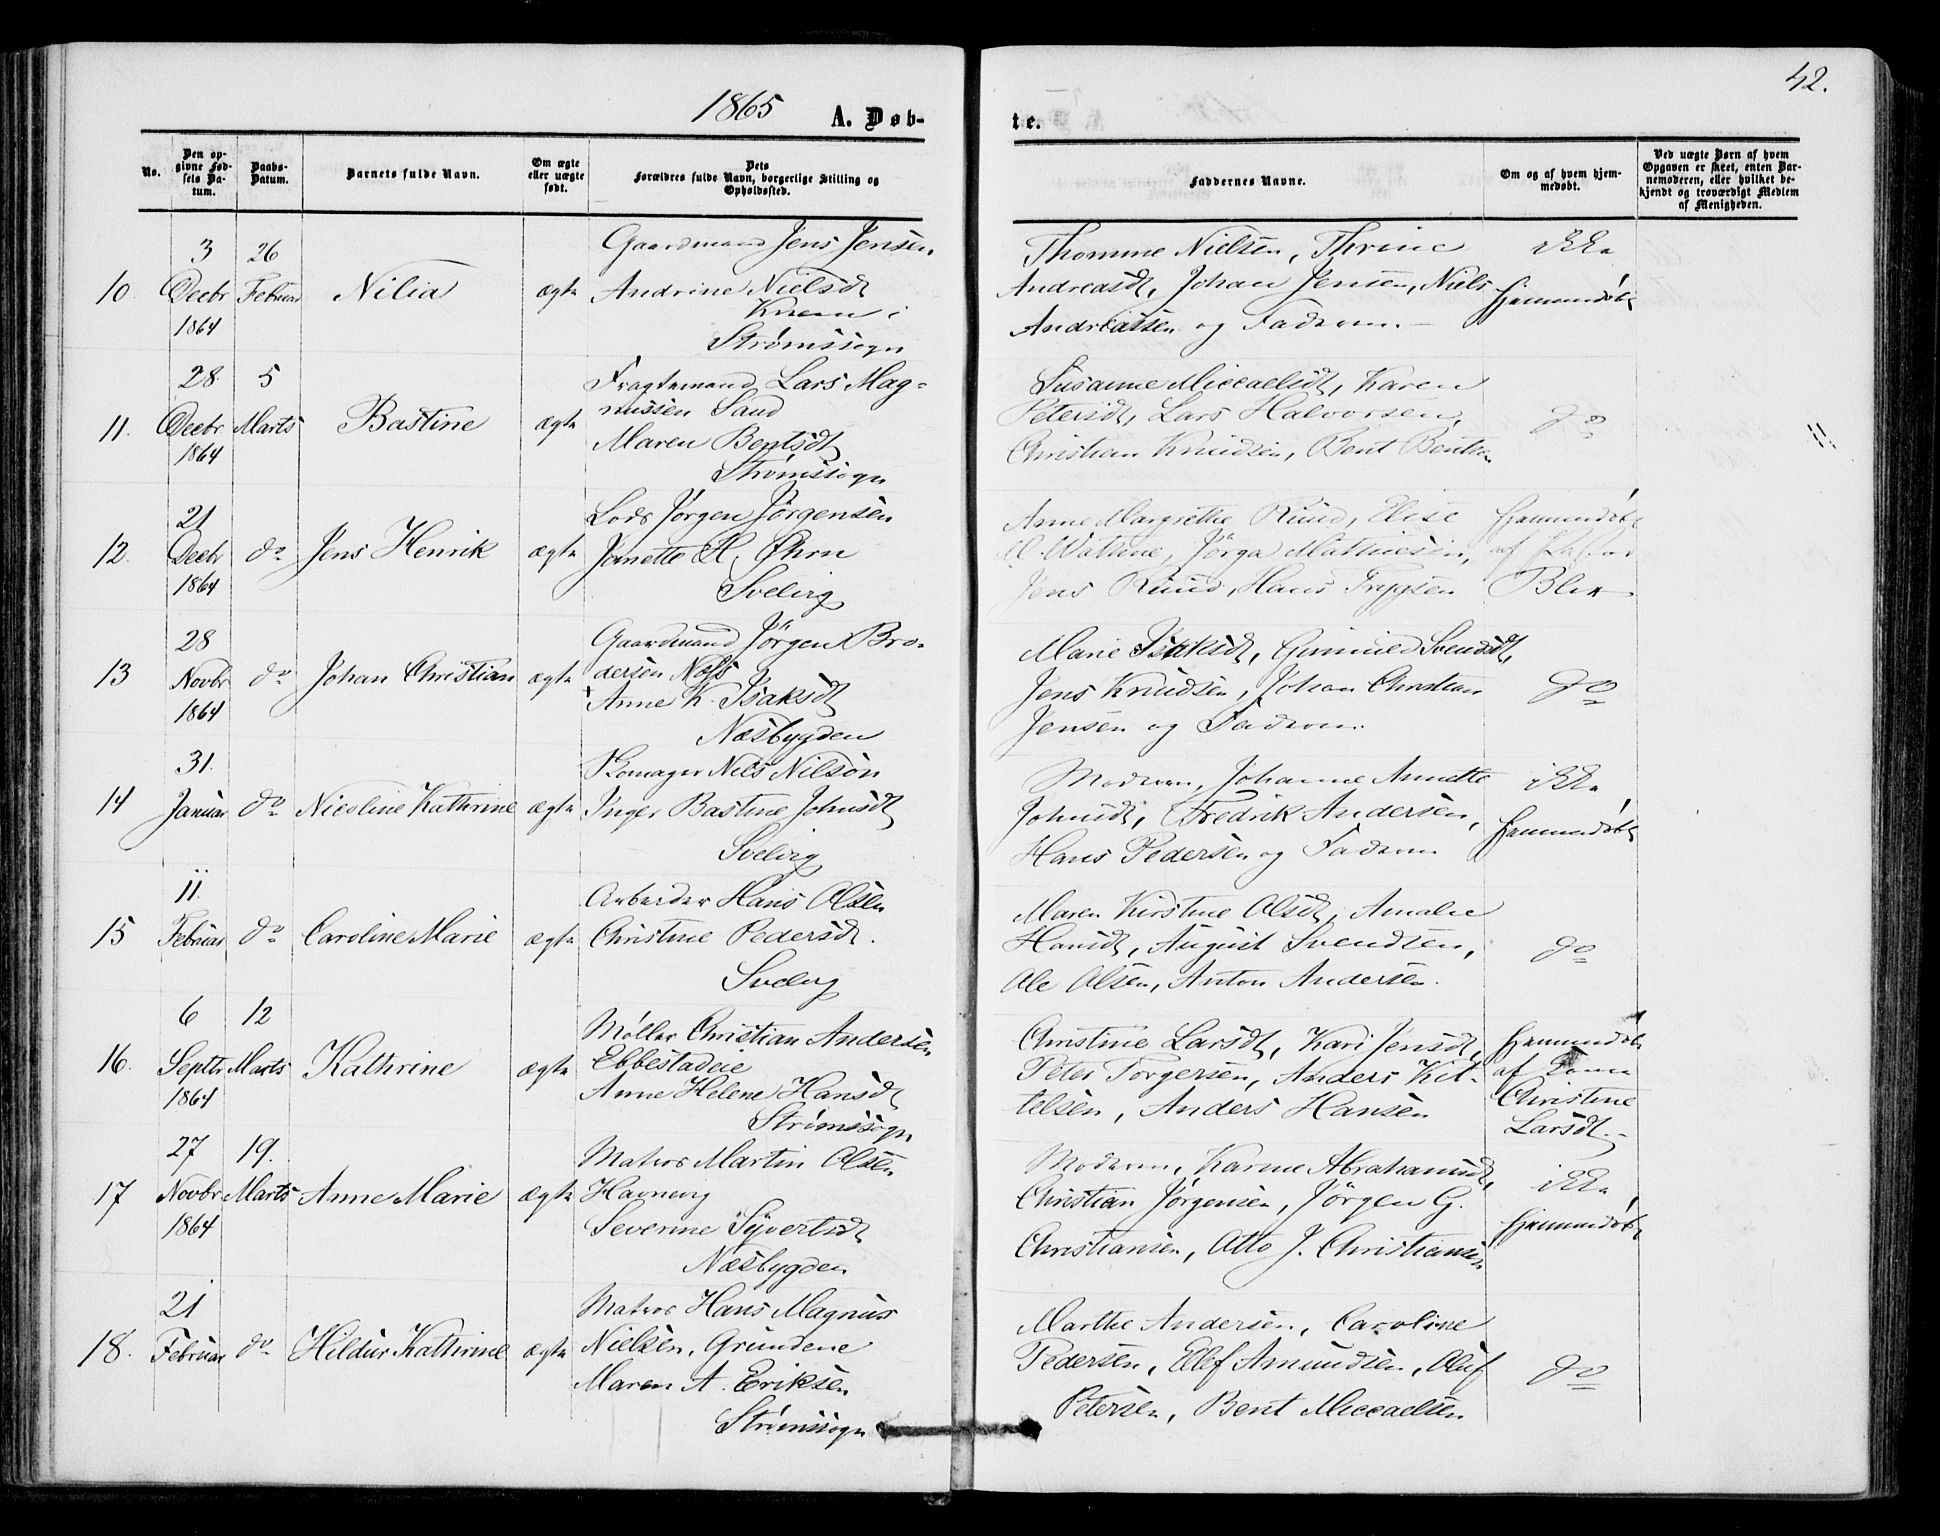 42.
1865 A. Døb- te.
No.
Den op-
givne Fød-
sels Da-
tum.
Daabs-
Datum.
Barnets fulde Navn.
Om ægte
eller uægte
født.
Dets
Forældres fulde Navn, borgerlige Stilling og
Opholdssted.
Faddernes Navne.
Om og af hvem hjem-
medøbt.
Ved uægte Børn af hvem
Opgaven er skeet, enten Bar-
nemoderen, eller hvilket be-
kjendt og troværdigt Medlem
af Menigheden.
10. 3 Decbr 1864 26 Februar Nilia ægte
Gaardmand Jens Jensen
Andrine Nielsdt
Knem i
Strømssogn
Thomine Nielsen, Thrine
Andreasdt, Johan Jensen, Niels
Andreassen og Faderen.
ikke
hjemmedøbt
11. 28 Decbr 1864 5 Marts Bastine ægte
Fragtemand Lars Mag-
nussen Sand
Maren Bentsdt
Strømssogn
Susanne Miccaelsdt, Karen
Petersdt, Lars Halvorsen,
Christian Knudsen, Bent Bentsen
do
12. 21 Decbr 1864 do Jens Henrik ægte
Lods Jørgen Jørgensen
Janette H. Øhrn
Svelvig
Anne Margrethe Ruud, Elise
M. Jørga Mathiesen,
Jens Ruud, Hans Trygsen
hjemmedøbt
af
Blix
13 28 Novbr 1864 do Johan Christian ægte
Gaardmand Jørgen Bro-
dersen
Anne K. Isaksdt
Næsbygden
Marie Isaksdt, Gunnild Svendsdt,
Jens Knudsen, Johan Christian
Jensen og Faderen.
do
14 31. Januar do Nicoline Kathrine ægte
Skomager Nels Nilson
Inger Bastine Johnsdt
Svelvig
Moderen, Johanne Annette
Johnsdt, Fredrik Andersen,
Hans Pedersen og Faderen
ikke
hjemmedøbt
15 11. Februar do Caroline Marie ægte
Arbeider Hans Olsen
Christine Pedersdt.
Svelvig
Maren Kirstine Olsdt, Amalie
Hansdt, August Svendsen,
Ole Olsen, Anton Andersen.
do
16. 6 Septbr 1864 12 Marts Kathrine ægte
Møller Christian Andersen
Ebbestadeie
Anne Helene Hansdt
Strømssogn
Christine Larsdt, Kari Jensdt,
Peter Torgersen, Anders Kit-
telsen, Anders Hansen
hjemmedøbt
af
Christine
Larsdt.
17 27 Novbr 1864 19. Marts Anne Marie ægte
Matros Martin Olsen
Havnevig
Severine Syvertsdt
Næsbygden
Moderen, Karine Abrahamsdt,
Christian Jørgensen, Jørgen G.
Christiansen, Otto J. Christiansen
ikke
hjemmedøbt
18. 21 Februar do Hildur Kathrine ægte
Matros Hans Magnus
Nielsen, Grundene
Maren A. Eriksen
Strømssogn
Marthe Andersen, Caroline
Pedersen, Ellef Amundsen, Oluf
Petersen, Bent Miccaelsen
do